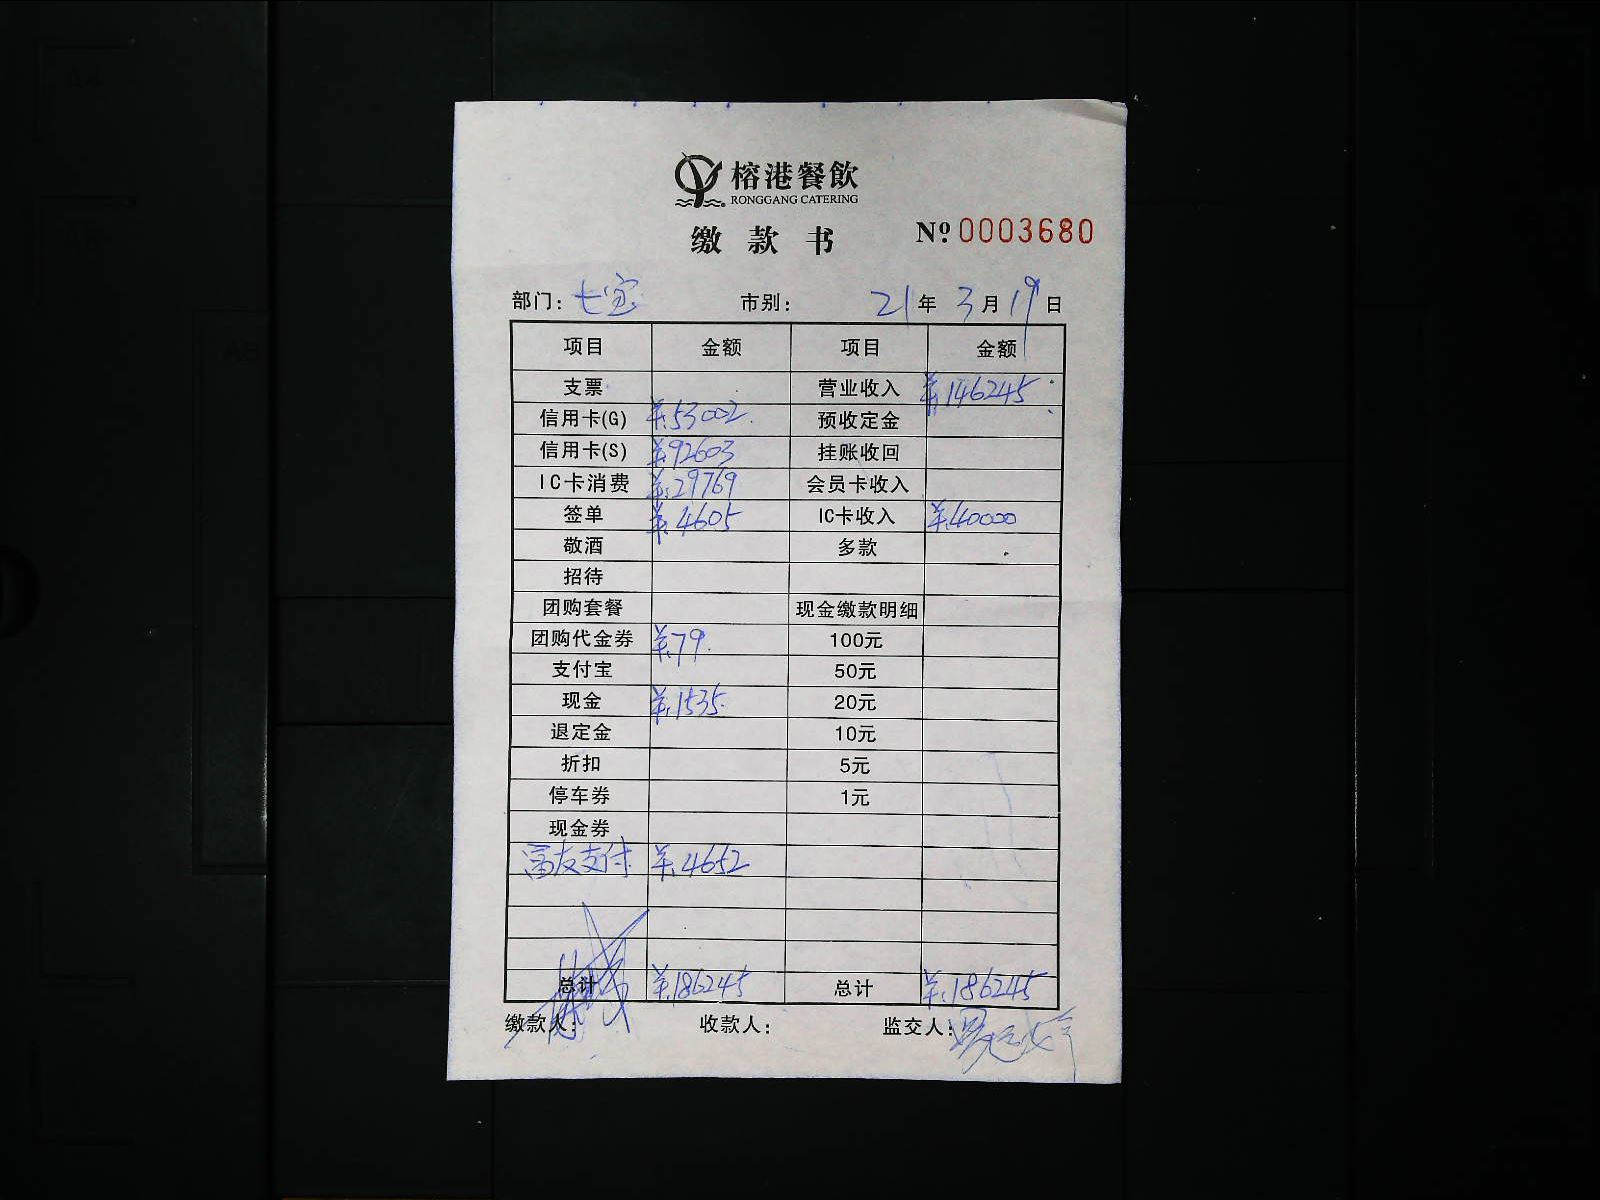 榕港餐飲
RONGGANG CATERING
缴款书
№ 0003680
部门: 七宝 市别: 21年3月19日
项目 金额 项目 金额
支票 营业收入 ¥.146245
信用卡(G) ¥.53002. 预收定金
信用卡(S) ¥.92603 挂账收回
IC卡消费 ¥.29769 会员卡收入
签单 ¥.4605 IC卡收入 ¥.40000
敬酒 多款
招待
团购套餐 现金缴款明细
团购代金券 ¥.79. 100元
支付宝 50元
现金 ¥.1535. 20元
退定金 10元
折扣 5元
停车券 1元
现金券
富友支付 ¥.4652
总计 ¥.186245 总计 ¥.186245
缴款人: 收款人: 监交人: